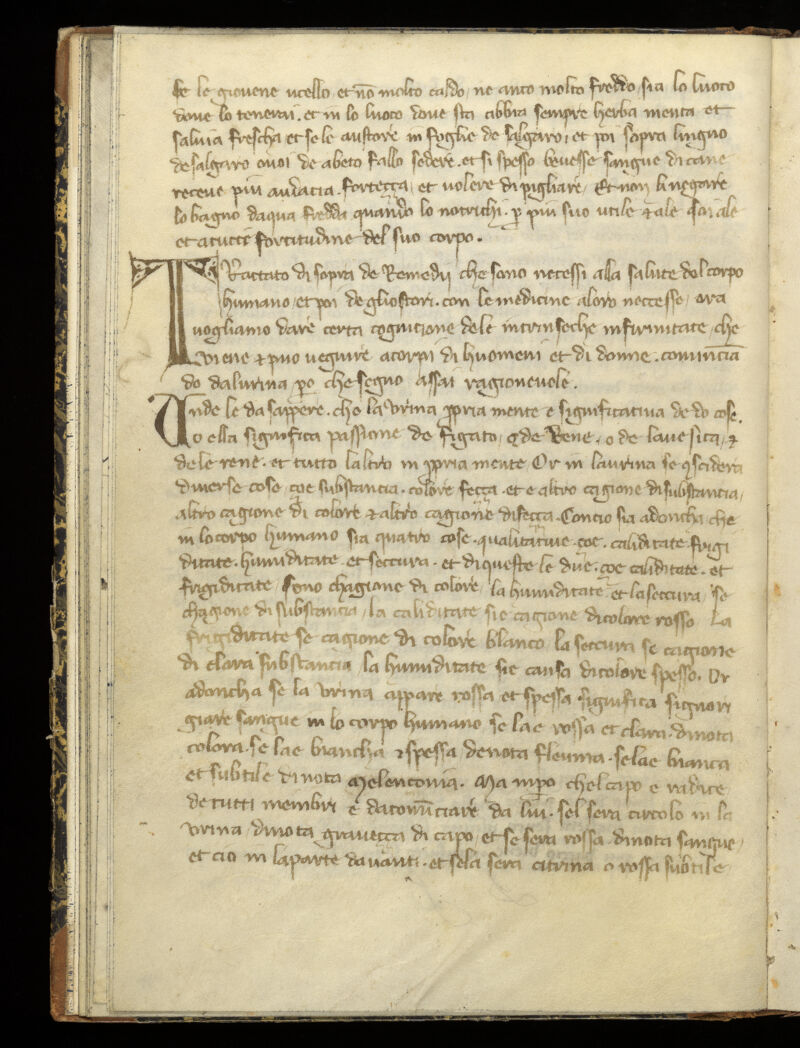 se le giovene ucello et nō molto caldo, ne anco molto freddo, sia lo luoco
dove lo tenerai. et in lo luoco dove sta abbia sempre herba menta et
salvia frescha et se le austore in foglie de salgaro, et poi sopra lingno
de salgaro overo de abeto fallo sedere. et si spesso bevesse sangue di cane
receve piu audacia. fortezza, et volere di pigliare, Et non li negare
lo bagno daqua fredda quando lo notrichi. ꝑ piu suo utile et ale
et a tutte fortitudine del suo corpo.
Tractato di sopra de Remedij che sono necessi alla salute del corpo
humano, et poi de gli ostori. con le medicine a loro necesse, ora
vogliamo dare certa cognitione dele intrinseche infirmitate, che
viene et puo ueguire a corpi di huomeni et di donne. comincia
do dalurina ꝑo che segno assai ragionevole.
Unde le da sappere. che la urina ꝓpria mente e significativa de do cose.
o ella significa passione de figato, o de Vene, o de la vesica, et
de le rene. et tutto laltro in ꝓpria mente Or in laurina se ꝯsidera
diverse cose çoe substancia. colore fecça. et e altro cagione di substancia,
altro cagione di colore et altro cagione di fecça. Concio sia adoncha che
in lo corpo humano sia quatro cose. qualitative. çoe. caliditate frigi
ditate. humiditate. et seccura. et di queste le due. çoe caliditate. et
frigiditate, sono chagione di colore, la humiditate et la seccura, se
chagione di substancia, la caliditate sie cagione di colore rosso. La
frigiditate se cagione di colore blanco la seccura se cagione
di clara substancia la humiditate sie causa di colore spesso. Or
adoncha se la urina appare rossa et spessa significa signori
giare sangue in lo corpo humano se la e rossa et clara. dinota
colora. se la e biancha et spessa denota fleuma. se la e bianca
et subtile dinota Melenconia. Ma inꝑo chel capo e radice
de tutti membri e da comīciare da lui. sel sera circolo in la
urina, dinota gravecca di capo, et se sera rossa. dinota sangue,
et cio in la parte davanti. et se la sera citrina o rossa subtile